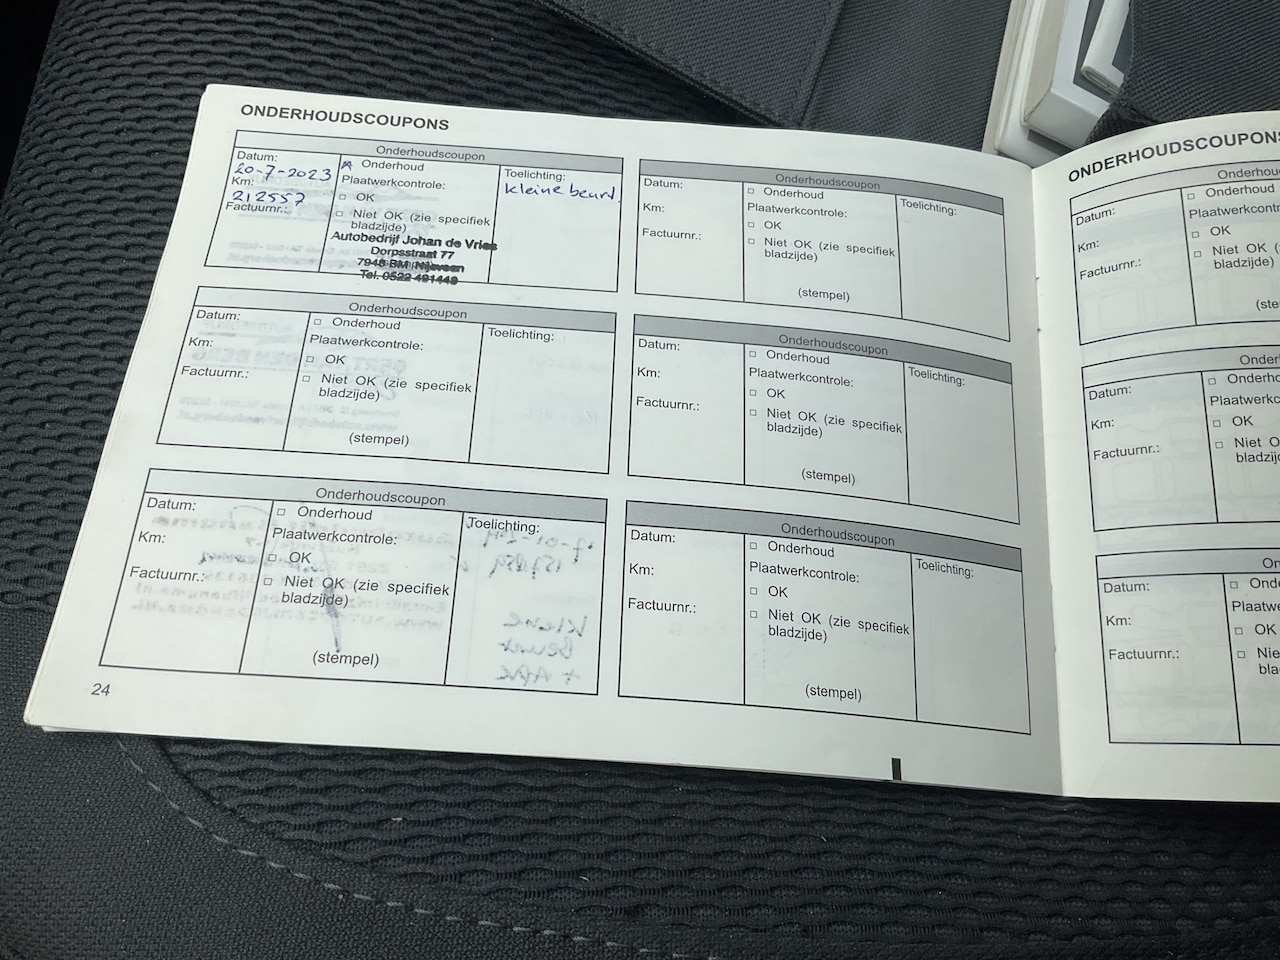 ONDERHOUDSCOUPONS
Onderhoudscoupon
Datum:
20-7-2023
Km:
212557
Factuurnr.:
x Onderhoud
Plaatwerkcontrole:
□ OK
□ Niet OK (zie specifiek
bladzijde)
Autobedrijf Johan de Vries
Dorpsstraat 77
7948 BM Nijeveen
Tel. 0522-491449
Toelichting:
kleine beurt
Onderhoudscoupon
Datum:
Km:
Factuurnr.:
□ Onderhoud
Plaatwerkcontrole:
□ OK
□ Niet OK (zie specifiek
bladzijde)
(stempel)
Toelichting:
Onderhoudscoupon
Datum:
Km:
Factuurnr.:
□ Onderhoud
Plaatwerkcontrole:
□ OK
□ Niet OK (zie specifiek
bladzijde)
(stempel)
Toelichting:
Onderhoudscoupon
Datum:
Km:
Factuurnr.:
□ Onderhoud
Plaatwerkcontrole:
□ OK
□ Niet OK (zie specifiek
bladzijde)
(stempel)
Toelichting:
Onderhoudscoupon
Datum:
Km:
Factuurnr.:
□ Onderhoud
Plaatwerkcontrole:
□ OK
□ Niet OK (zie specifiek
bladzijde)
(stempel)
Toelichting:
Onderhoudscoupon
Datum:
Km:
Factuurnr.:
□ Onderhoud
Plaatwerkcontrole:
□ OK
□ Niet OK (zie specifiek
bladzijde)
(stempel)
Toelichting:
24
ONDERHOUDSCOUPONS
Onderhou
Datum:
Km:
Factuurnr.:
□ Onderhoud
Plaatwerkcontr
□ OK
□ Niet OK (
bladzijde)
(ste
Onder
Datum:
Km:
Factuurnr.:
□ Onderho
Plaatwerkc
□ OK
□ Niet O
bladzijd
On
Datum:
Km:
Factuurnr.:
□ Onde
Plaatwe
□ OK
□ Nie
bla